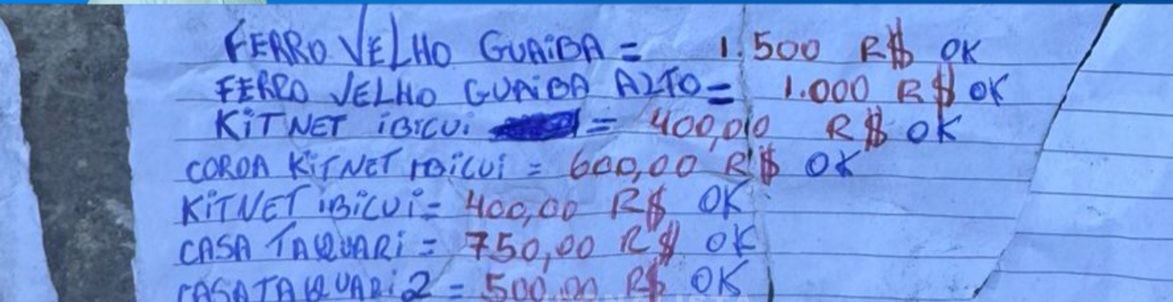 FERRO VELHO GUAiBA = 1.500 R$ OK
FERRO VELHO GUAiBA ALTO = 1.000 R$ OK
KiTNET iBiCUi = 400,00 R$ OK
COROA KiTNET iBiCUi = 600,00 R$ OK
KiTNET iBiCUi = 400,00 R$ OK
CASA TAQUARi = 750,00 R$ OK
CASA TAQUARi 2 = 500,00 R$ OK